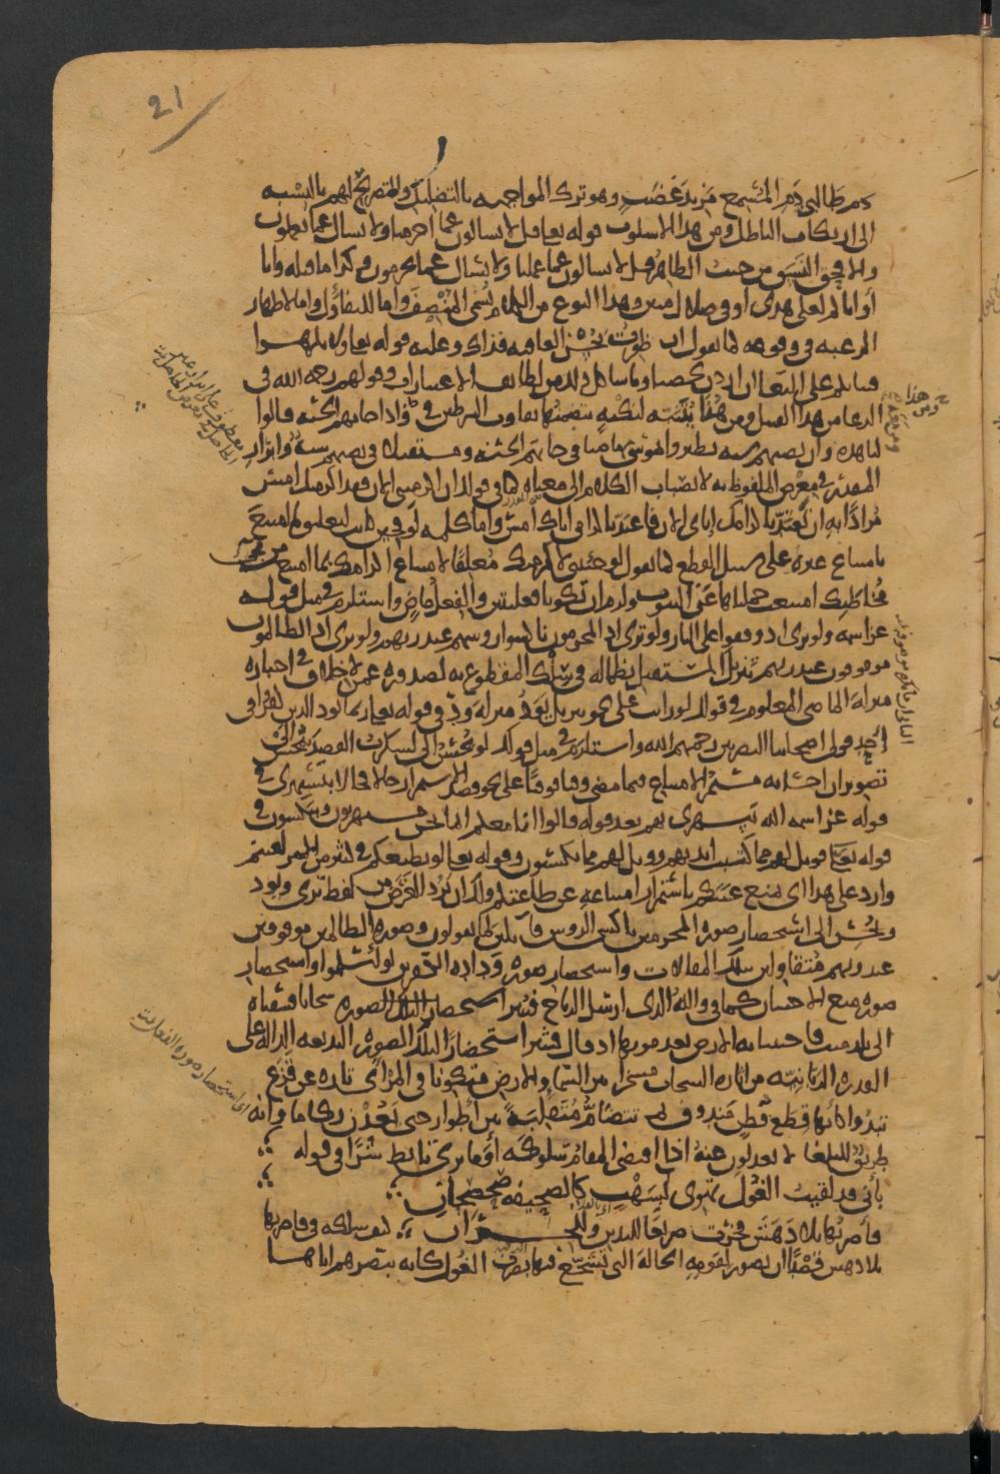 21
دم طالبى دم المسمع مزيد غضب وهو ترك المواجهه بالتضليل والتصريح لهم بالنسبه
الى ارتكاب الباطل ومن هذا الاسلوب قوله تعالى قل لا تسالون عما اجرمنا ولا نسال عما تعملون
والا فحق النسق من حيث الظاهر قل لا تسالون عما عملنا ولا نسال عما تجرمون وكذا ما قبله وانا
او اياكم لعلى هدى او فى ضلال مبين وهذا النوع من الكلام يسمى المنصف واما للتفاول واما لاظهار
الرغبه فى وقوعه كما تقول ان ظفرت بحسن العاقبه فذاك وعليه قوله تعالى ولا تكرهوا
فتياتكم على البغاء ان اردن تحصنا وما شاكل ذلك من لطائف الاعتبارات وقولهم رحمه الله فى
الدعاء من هذا القبيل ومن هنا ينبه لنكته يتضمنها تفاوت الشرطين فى فاذا جاءتهم الحسنه قالوا
لنا هذه وان تصبهم سيئه يطيروا بموسى ماضيا فى جاءتهم الحسنه ومستقبلا فى تصبهم سيئه وابراز
المقدر فى معرض الملفوظ به لانصباب الكلام الى معناه كما فى قولك ان اكرمتنى الان فقد اكرمتك امس
مرادا به ان تعتد باكرامك اياى الان فاعتد باكرامى اياك امس واما كلمه لو فحين كانت لتعليق ما امتنع
بامتناع غيره على سبيل القطع كما تقول لو جئتنى لاكرمتك معلقا لامتناع اكرامك بما امتنع من مجىء
مخاطبك امتنعت جملتاها عن الثبوت ولزم ان تكونا فعليتين والفعل ماض واستلزم فى مثل قوله
عز اسمه ولو ترى اذ وقفوا على النار ولو ترى اذ المجرمون ناكسوا روسهم عند ربهم ولو ترى اذ الظالمون
موقوفون عند ربهم تنزيل المستقبل نظما له فى سلك المقطوع به لصدوره عمن لا خلاف فى اخباره
منزله الماضى المعلوم فى قولك لو رايت على نحو تنزيل يود منزله ود فى قوله تعالى ربما يود الذين كفروا فى
احد قولى اصحابنا البصريين رحمهم الله واستلزم فى مثل قولك لو تحسن الى لشكرت القصد بتحسن الى
تصوير ان احسانه مستمر الامتناع فيما مضى وقتا فوقتا على نحو قصد الاستمرار حالا فحالا بيستهزئ فى
قوله عز اسمه الله يستهزئ بهم بعد قوله قالوا انا معكم انما نحن مستهزون ويكسبون فى
قوله تعالى فويل لهم مما كتبت ايديهم وويل لهم مما يكسبون وقوله تعالى لو يطيعكم فى كثير من الامر لعنتم
وارد على هذا اى يمتنع عنتكم باستمرار امتناعه عن طاعتكم ولك ان ترد الغرض من لفظ ترى ويود
وتحسن الى استحضار صوره المجرمين ناكسى الروس قائلين لما يقولون وصوره الظالمين موقوفين
عند ربهم متقاولين بتلك المقالات واستحضار صوره ودادة الكافرين لو اسلموا واستحضار
صوره منع الاحسان كما فى والله الذى ارسل الرياح فتثير استحضار لتلك الصوره سحابا فسقناه
الى بلد ميت فاحيينا به الارض بعد موتها اذ قال فتثير استحضارا لتلك الصوره البديعه الداله على
القدره الربانيه من اثاره السحاب مسخرا بين السماء والارض متكونا فى المراى تاره عن قزع
تبدوا كانها قطع قطن مندوف ثم تتضام متقلبة بين اطوار حتى يعدن ركاما وانه
طريق للبلغاء لا يعدلون عنه اذا اقتضى المقام سلوكه او ما ترى تابط شرا فى قوله
بانى قد لقيت الغول تهوى بسهب كالصحيفه صحصحان
فاضربها بلا دهش فخرت صريعا لليدين وللجران كيف سلكه فى فاضربها
بلا دهش قصدا ان يصور لقومه الحالة التى تشجع فيها بضرب الغول كانه يبصرهم اياها
ومن هذا
اى استحضار صوره